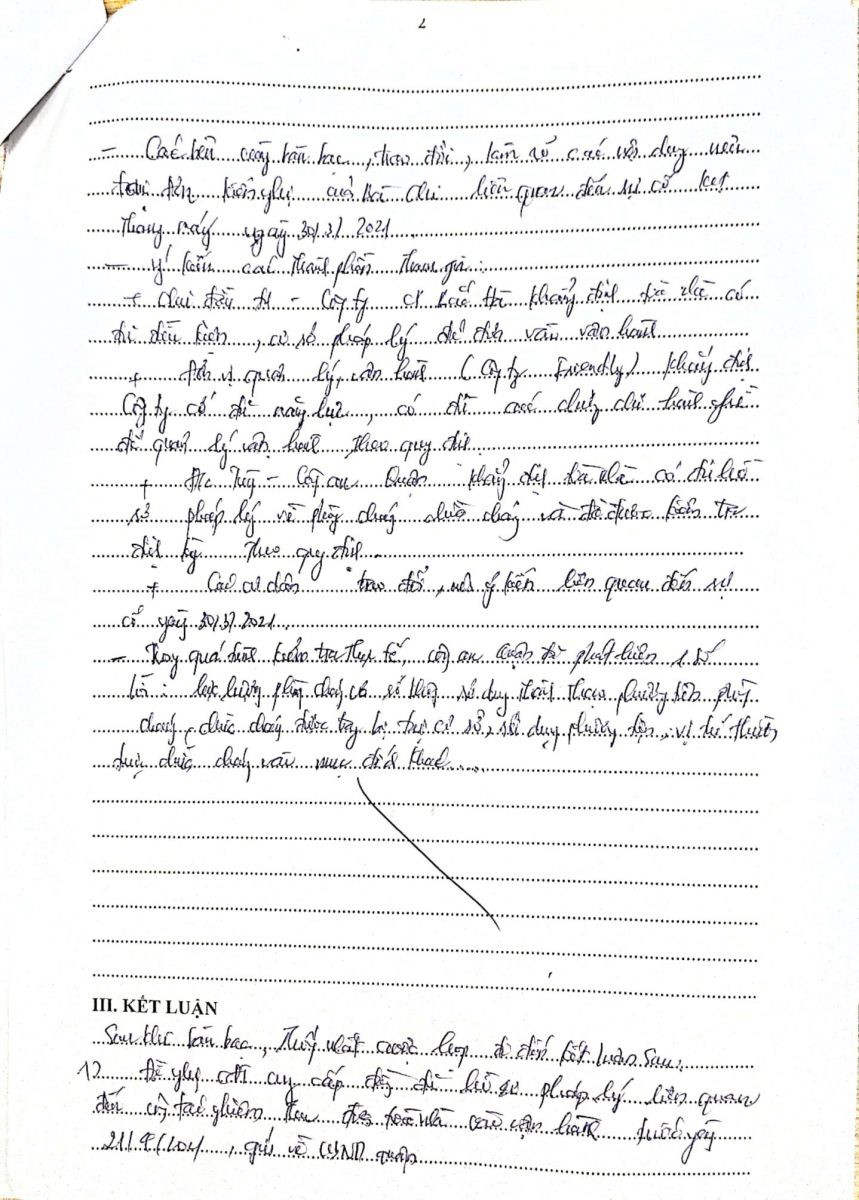 2
- Các bên cùng bàn bạc, trao đổi, làm rõ các nội dung nêu
tại đơn kiến nghị của bà Chi liên quan đến sự cố kẹt
thang máy ngày 30/3/2021
- Ý kiến các thành phần tham gia:
+ Chủ đầu tư - Công ty CP khẳng định tòa nhà có
đủ điều kiện, cơ sở pháp lý để đưa vào vận hành
+ Đơn vị quản lý, vận hành (Công ty Friendly) khẳng định
Công ty có đủ năng lực, có đủ các chứng chỉ hành nghề
để quản lý vận hành theo quy định.
+ Đ/c - Công an Quận khẳng định tòa nhà có đủ hồ
sơ pháp lý về phòng cháy chữa cháy và đã được kiểm tra
định kỳ theo quy định.
+ Các cư dân trao đổi, nêu ý kiến liên quan đến sự
cố ngày 30/3/2021.
- Trong quá trình kiểm tra thực tế, công an Quận đã phát hiện 1 số
lực lượng phòng cháy sử dụng thành thạo phương tiện phòng
cháy, chữa cháy được trang bị tại cơ sở, sử dụng phương tiện, vị trí
chữa cháy vào mục đích khác....
III. KẾT LUẬN
Sau khi bàn bạc, thống nhất cuộc họp đi đến kết luận sau:
1). Đề nghị CĐT cung cấp đầy đủ hồ sơ pháp lý liên quan
đến công tác nghiệm thu đưa tòa nhà vào vận hành trước ngày
, gửi về UBND quận